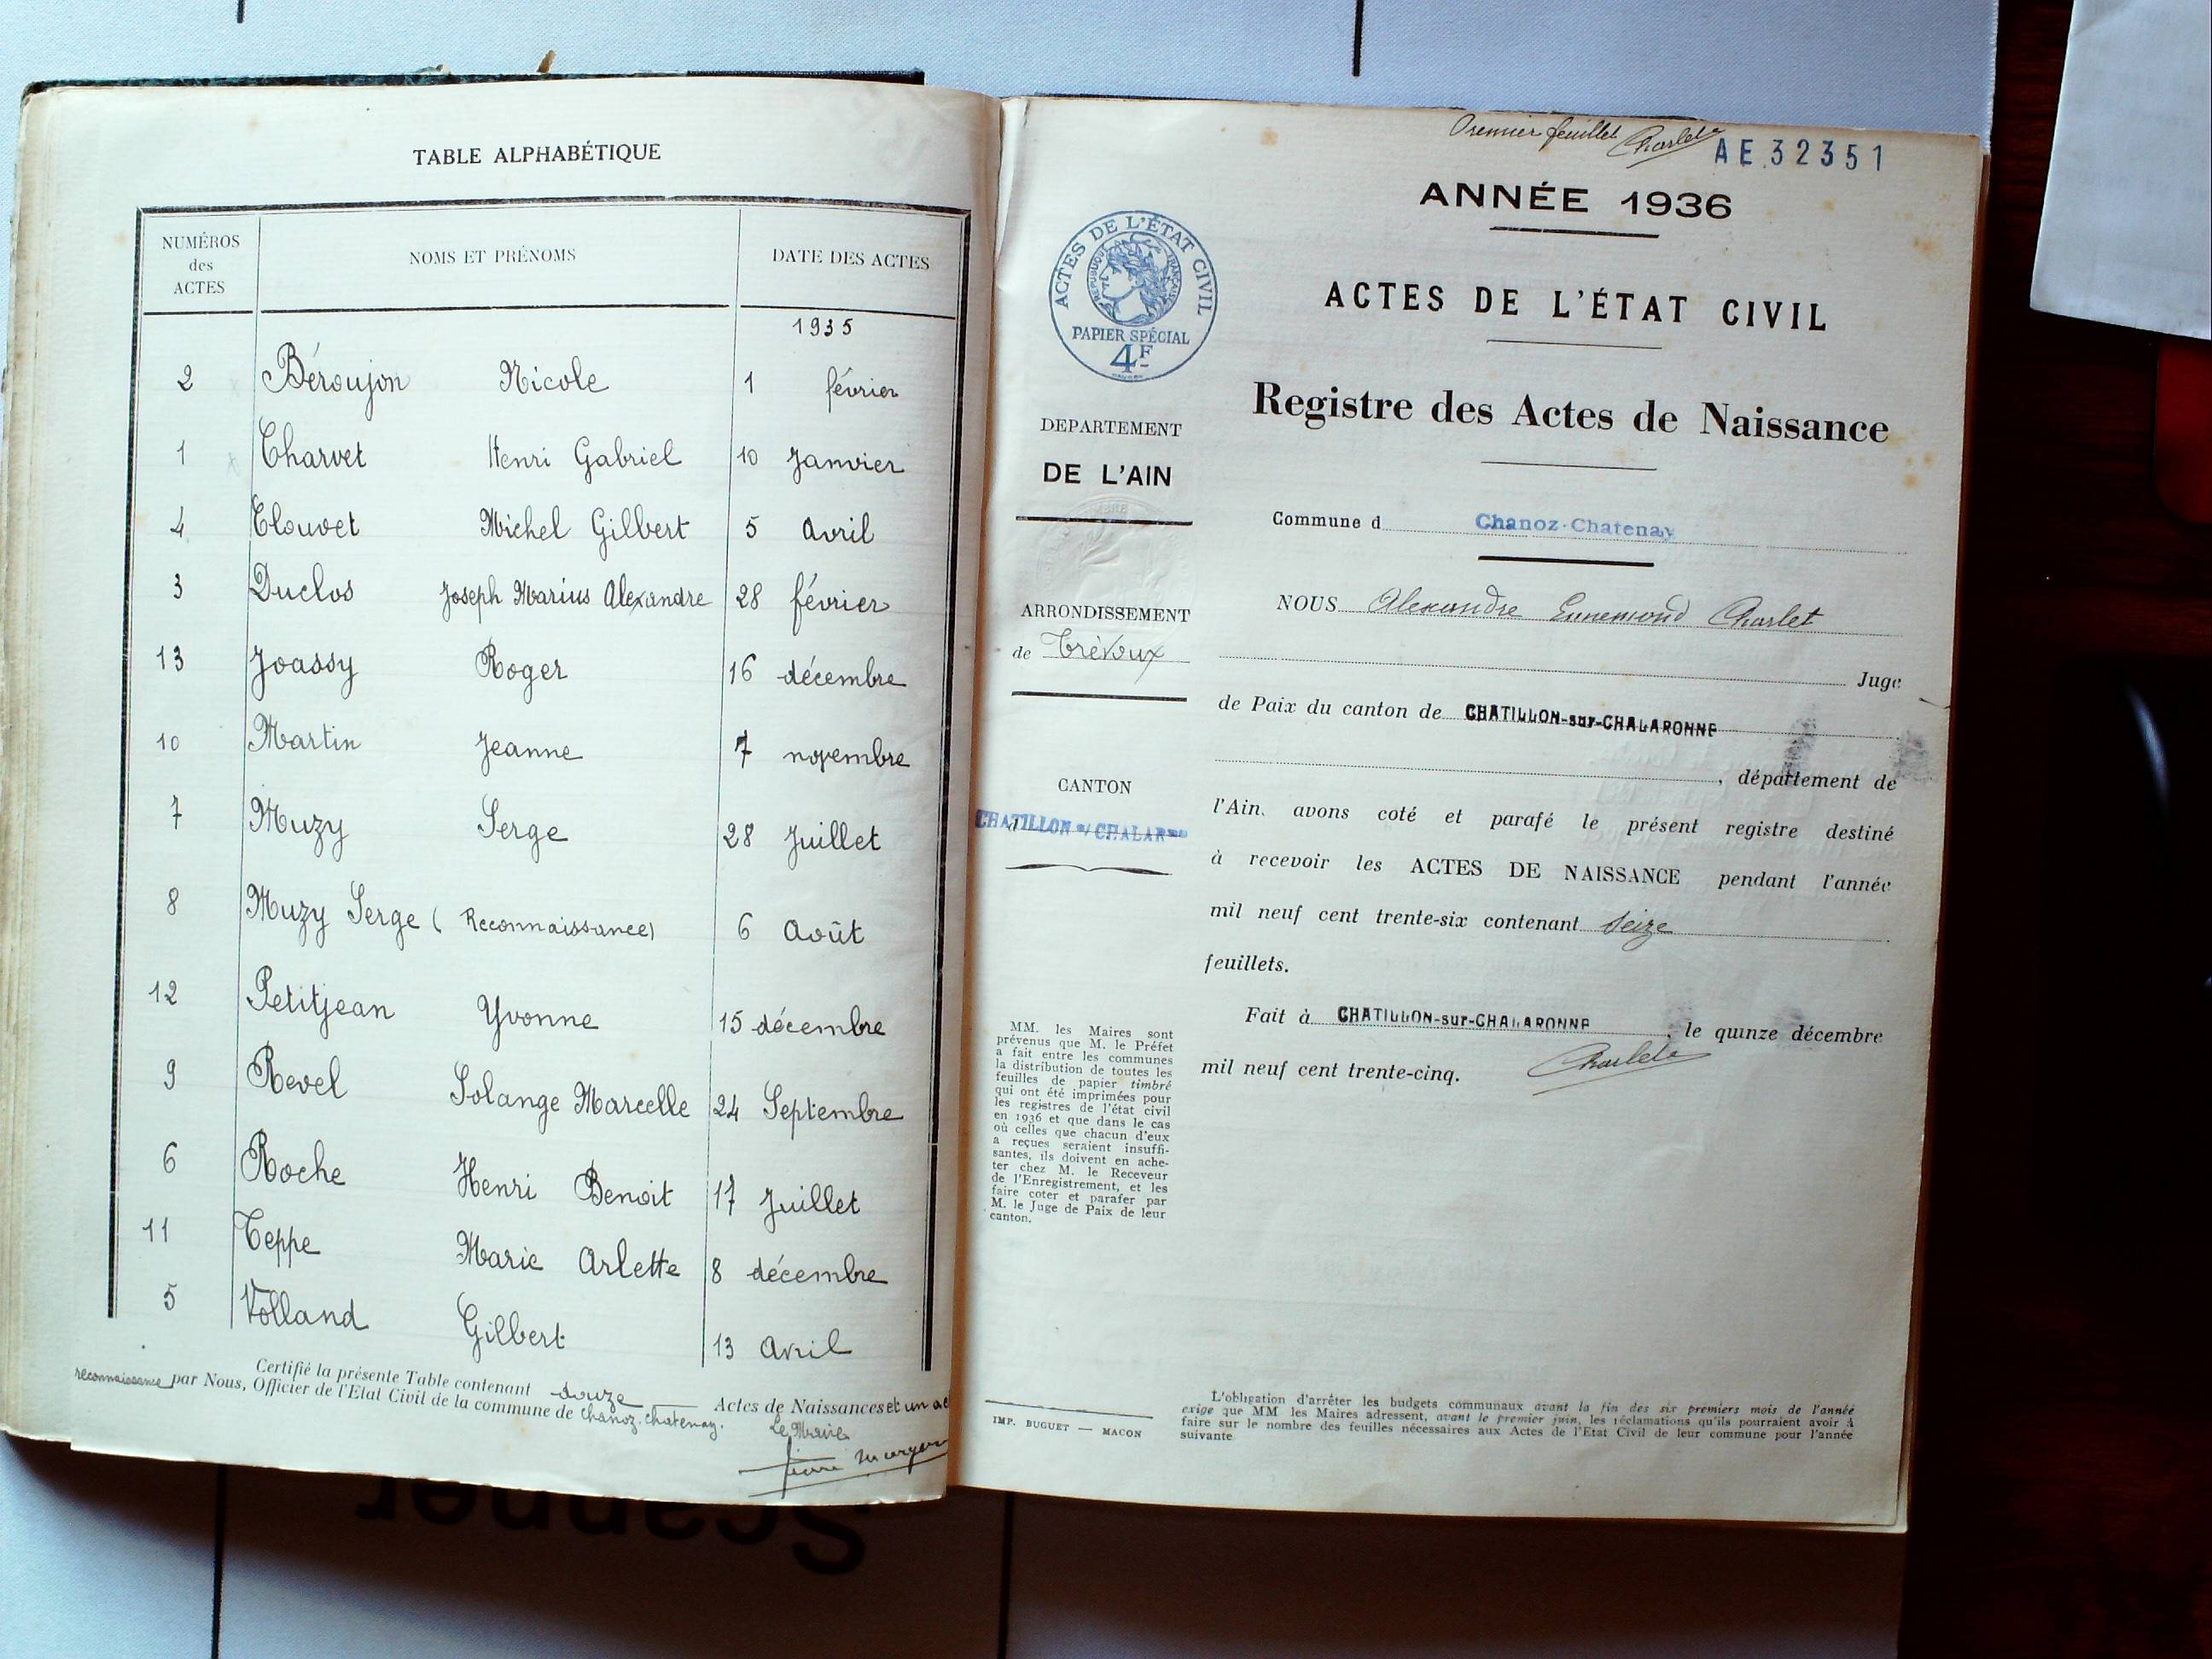 TABLE ALPHABÉTIQUE
NUMÉROS des ACTES NOMS ET PRÉNOMS DATE DES ACTES
1935
2 Béroujon Nicole 1 février
1 Charvet Henri Gabriel 10 Janvier
4 Clouvet Michel Gilbert 5 Avril
3 Duclos Joseph Marius Alexandre 28 février
13 Joassy Roger 16 décembre
10 Martin Jeanne 7 novembre
7 Muzy Serge 28 Juillet
8 Muzy Serge (Reconnaissance) 6 Août
12 Petitjean Yvonne 15 décembre
9 Revel Solange Marcelle 24 Septembre
6 Roche Henri Benoit 17 Juillet
11 Teppe Marie Arlette 8 décembre
5 Volland Gilbert 13 Avril
Certifié la présente Table contenant douze Actes de Naissances et un
reconnaissance par Nous, Officier de l'Etat Civil de la commune de Chanoz-Chatenay.
Le Maire
Premier feuillet Charlet
AE.32351
ANNÉE 1936
ACTES DE L'ÉTAT CIVIL
RÉPUBLIQUE FRANÇAISE
PAPIER SPÉCIAL
4F
ACTES DE L'ÉTAT CIVIL
Registre des Actes de Naissance
DEPARTEMENT
DE L'AIN
ARRONDISSEMENT
de Trévoux
CANTON
CHATILLON s/ CHALARnne
Commune d Chanoz-Chatenay
NOUS Alexandre Ennemond Charlet
Juge
de Paix du canton de CHATILLON-sur-CHALARONNE
, département de
l'Ain, avons coté et parafé le présent registre destiné
à recevoir les ACTES DE NAISSANCE pendant l'année
mil neuf cent trente-six contenant seize
feuillets.
Fait à CHATILLON-sur-CHALARONNE, le quinze décembre
mil neuf cent trente-cinq.
Charlet
MM. les Maires sont
prévenus que M. le Préfet
a fait entre les communes
la distribution de toutes les
feuilles de papier timbré
qui ont été imprimées pour
les registres de l'état civil
en 1936 et que dans le cas
où celles que chacun d'eux
a reçues seraient insuffi-
santes, ils doivent en ache-
ter chez M. le Receveur
de l'Enregistrement, et les
faire coter et parafer par
M. le Juge de Paix de leur
canton.
IMP. BUGUET — MACON
L'obligation d'arrêter les budgets communaux avant la fin des six premiers mois de l'année
exige que MM les Maires adressent, avant le premier juin, les réclamations qu'ils pourraient avoir à
faire sur le nombre des feuilles nécessaires aux Actes de l'Etat Civil de leur commune pour l'année
suivante
Scanner